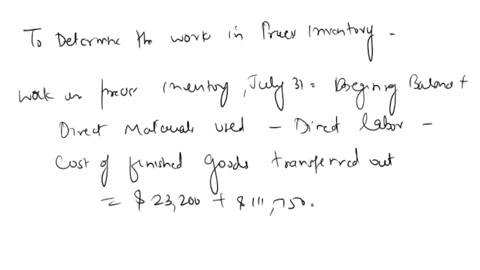 To Determine the work in Process Inventory -
Work in process inventory, July 31 = Begining Balance +
Direct Materials used - Direct labor -
Cost of finished goods transferred out
= $ 23,200 + $ 111,750.